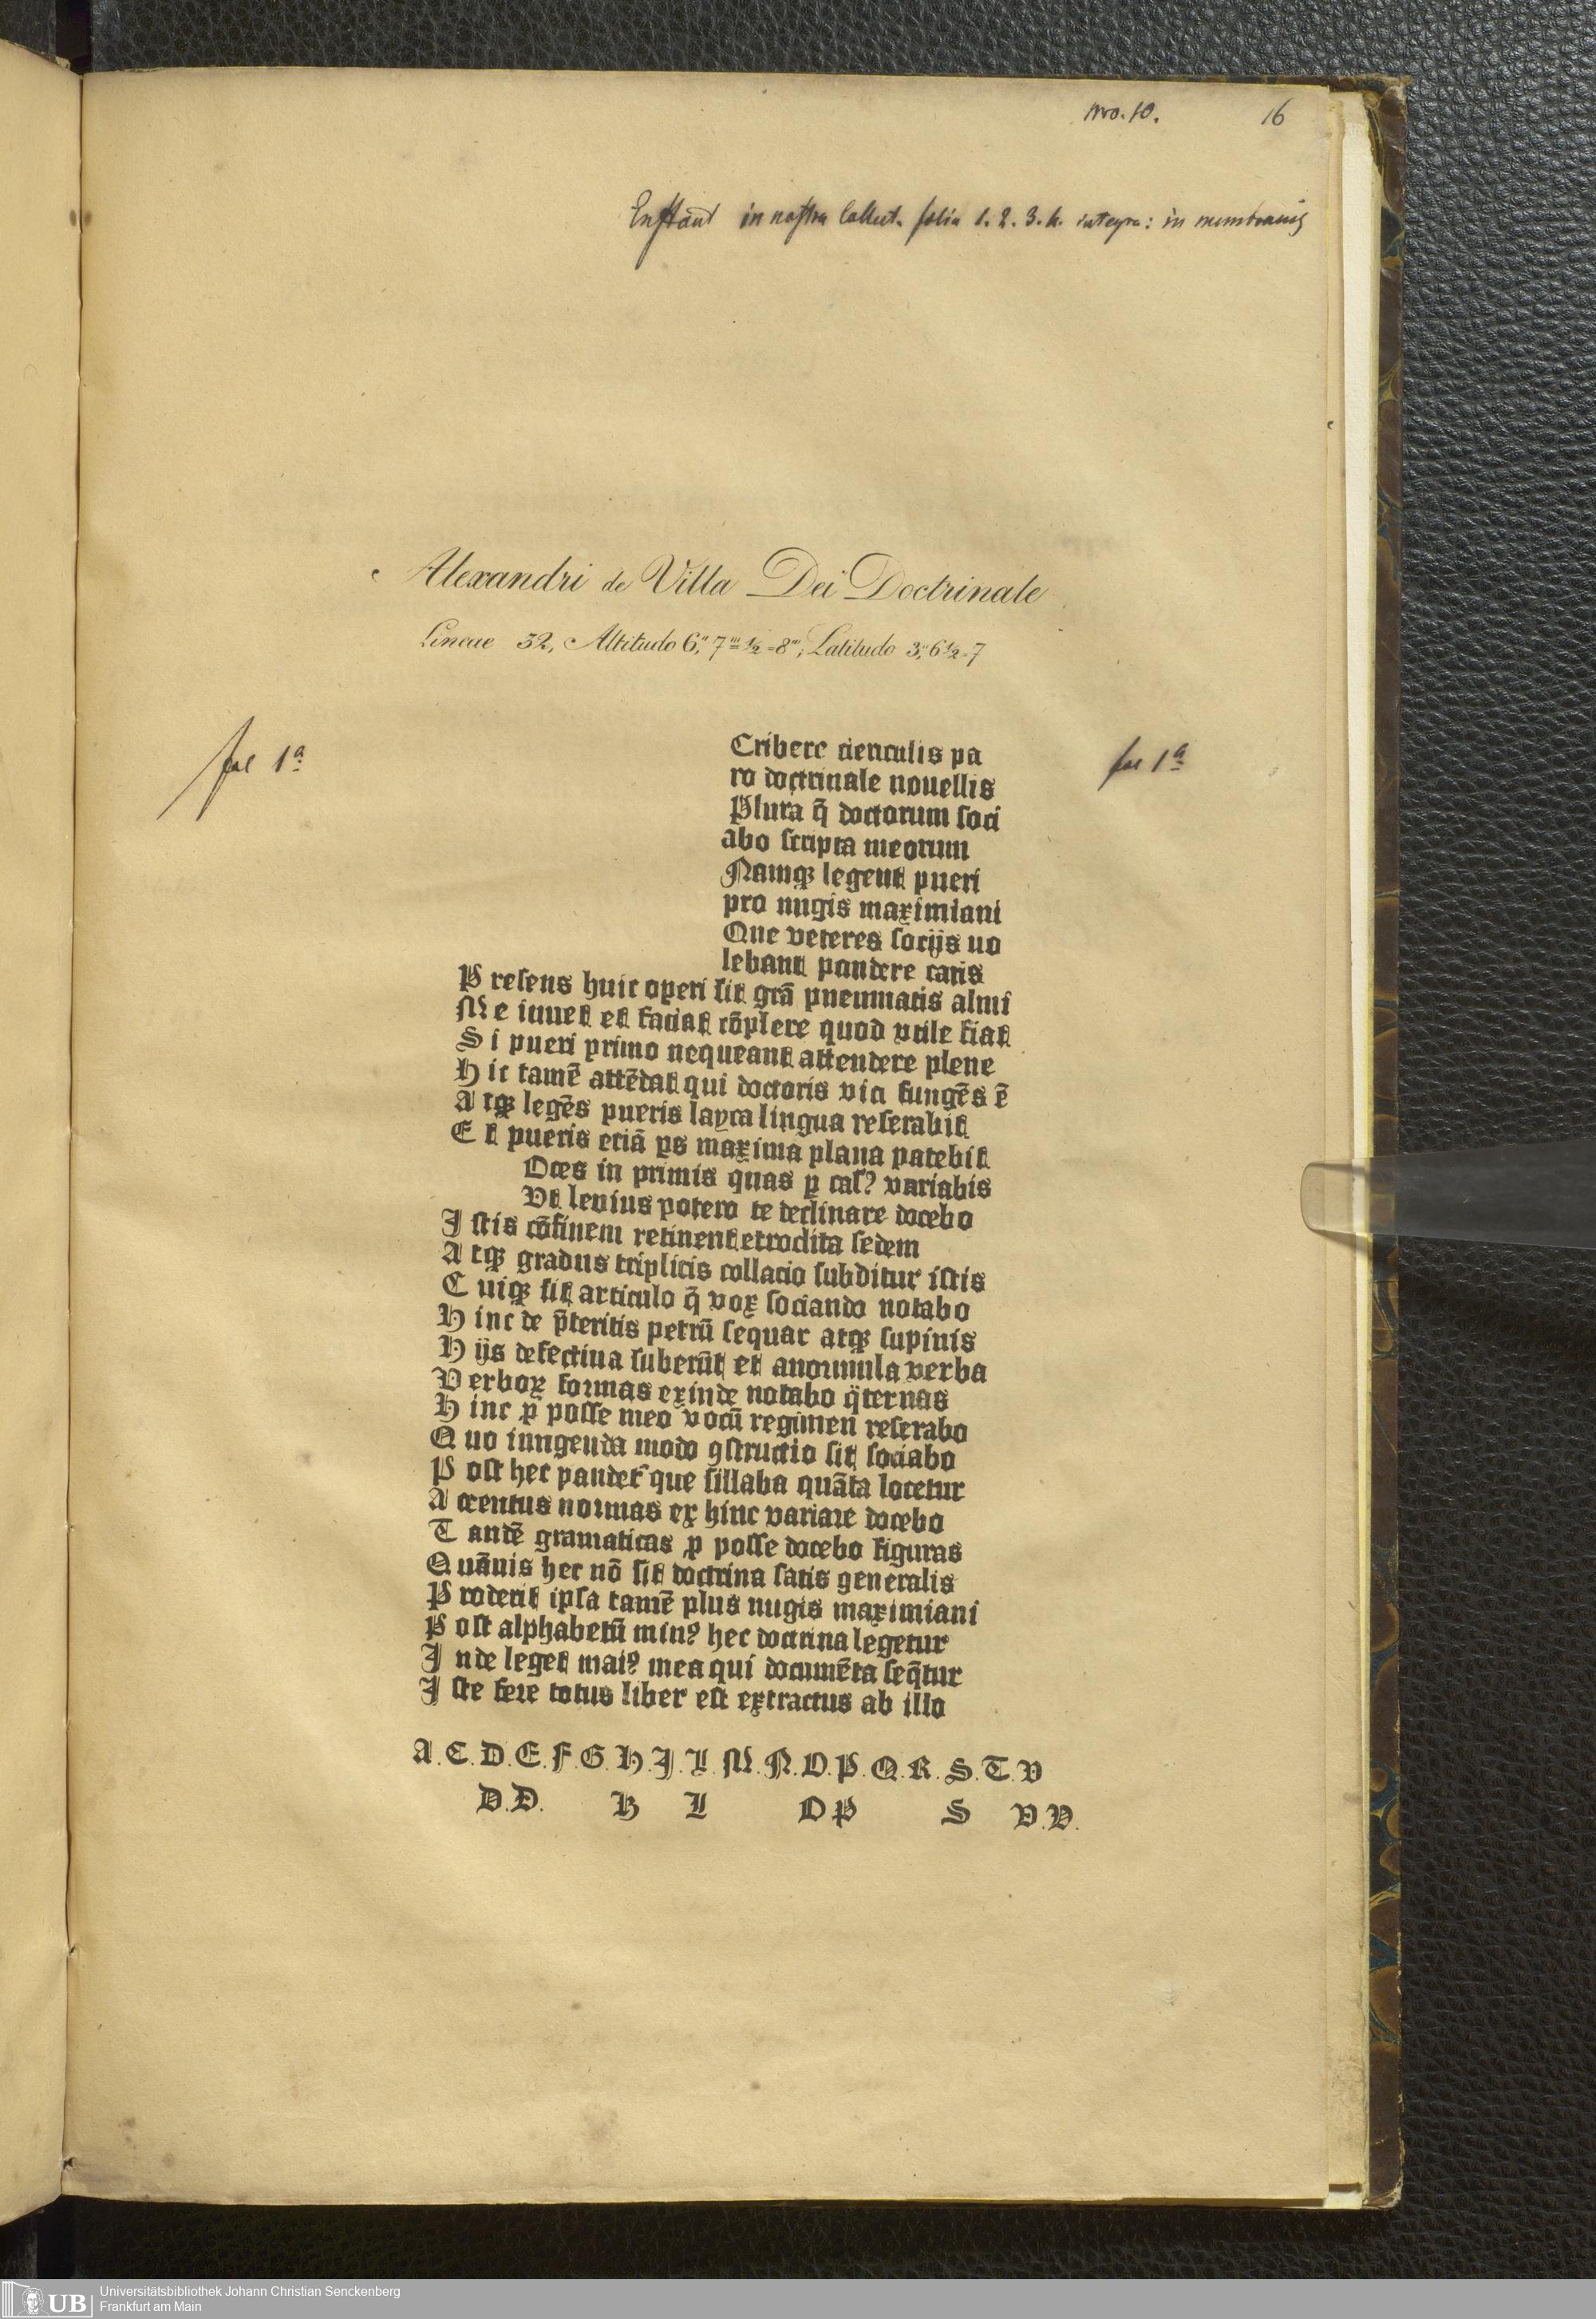 nro. 10. 16
Exstant in nostra Collect. folia 1. 2. 3. 4. integra: in membranis
Alexandri de Villa Dei Doctrinale
Lineae 32, Altitudo 6", 7'''=½=8''', Latitudo 3", 6½=7
fol 1ª
fol 1ª
Cribere clericulis pa
ro doctrinale nouellis
Plura q̄ doctorum soci
abo scripta meorum
Namqꝫ legent pueri
pro nugis maximiani
Que veteres socijs no
lebant pandere caris
P resens huic operi sit grā pneumatis almi
M e iuuet et faciat cōplere quod vtile fiat
S i pueri primo nequeant attendere plene
H ic tamē attēdat qui doctoris vice fungēs ē
A tqꝫ legēs pueris layca lingua reserabit
E t pueris etiā ps maxima plana patebit
Oces in primis quas ꝑ casꝰ variabis
Vt leuius potero te declinare docebo
I stis cōfinem retinent etroclita sedem
A tqꝫ gradus triplicis collacio subditur istis
C uiqꝫ sit articulo q̄ vox sociando notabo
H inc de p̄teritis petrū sequar atqꝫ supinis
H ijs defectiua suberūt et anormula verba
V erboꝝ formas exinde notabo q̈ternas
H inc ꝓ posse meo vocū regimen reserabo
Q uo iungenda modo ꝯstructio sit sociabo
P ost hec pandet᷑ que sillaba quāta locetur
A ccentus normas ex hinc variare docebo
T andē gramaticas ꝓ posse docebo figuras
Q uāuis hec nō sit doctrina satis generalis
P roderit ipsa tamē plus nugis maximiani
P ost alphabetū minꝰ hec doctrina legetur
I nde leget maiꝰ mea qui documēta seq̄tur
I ste fere totus liber est extractus ab illo
A. C. D. E. F. G. H. I. L. M. N. O. P. Q. R. S. T. V
D. D. H L O P S V. V.
UB Universitätsbibliothek Johann Christian Senckenberg
Frankfurt am Main